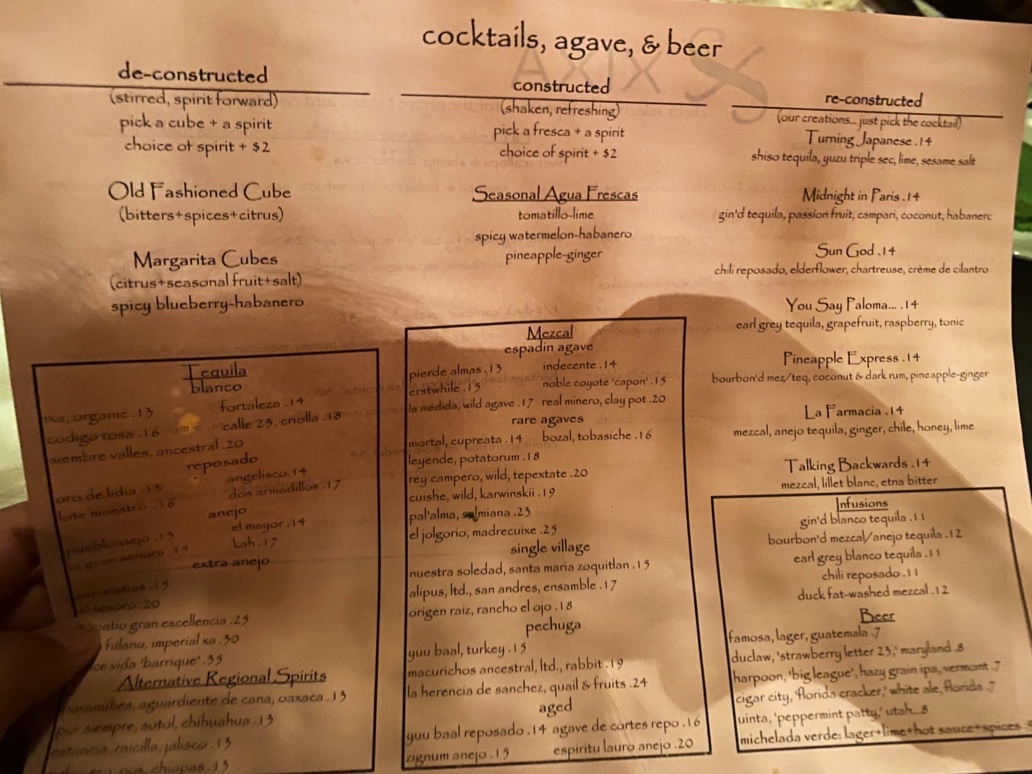 cocktails, agave, & beer
de-constructed
(stirred, spirit forward)
pick a cube + a spirit
choice of spirit + $2
Old Fashioned Cube
(bitters+spices+citrus)
Margarita Cubes
(citrus+seasonal fruit+salt)
spicy blueberry-habanero
Tequila
blanco
organic .13
fortaleza .14
codigo rosa .16
calle 23, criolla .18
siembre valles, ancestral .20
reposado
oro de lidia .13
angelisco .14
lote maestro .16
dos armadillos .17
anejo
pueblo viejo .13
el mayor .14
la gran senora .15
bah .17
extra anejo
.15
el tesoro .20
gran excelencia .25
fulano, imperial xa .30
vida 'barrique' .35
Alternative Regional Spirits
paranubes, aguardiente de cana, oaxaca .13
por siempre, sotol, chihuahua .13
estancia, raicilla, jalisco .13
chiapas .13
constructed
(shaken, refreshing)
pick a fresca + a spirit
choice of spirit + $2
Seasonal Agua Frescas
tomatillo-lime
spicy watermelon-habanero
pineapple-ginger
Mezcal
espadin agave
pierde almas .13
indecente .14
erstwhile .15
noble coyote 'capon' .15
la medida, wild agave .17
real minero, clay pot .20
rare agaves
mortal, cupreata .14
bozal, tobasiche .16
leyende, potatorum .18
rey campero, wild, tepextate .20
cuishe, wild, karwinskii .19
pal'alma, salmiana .23
el jolgorio, madrecuixe .25
single village
nuestra soledad, santa maria zoquitlan .15
alipus, ltd., san andres, ensamble .17
origen raiz, rancho el ojo .18
pechuga
yuu baal, turkey .15
macurichos ancestral, ltd., rabbit .19
la herencia de sanchez, quail & fruits .24
aged
yuu baal reposado .14
agave de cortes repo .16
zignum anejo .15
espiritu lauro anejo .20
re-constructed
(our creations... just pick the cocktail)
Turning Japanese .14
shiso tequila, yuzu triple sec, lime, sesame salt
Midnight in Paris .14
gin'd tequila, passion fruit, campari, coconut, habanero
Sun God .14
chili reposado, elderflower, chartreuse, crème de cilantro
You Say Paloma... .14
earl grey tequila, grapefruit, raspberry, tonic
Pineapple Express .14
bourbon'd mez/teq, coconut & dark rum, pineapple-ginger
La Farmacia .14
mezcal, anejo tequila, ginger, chile, honey, lime
Talking Backwards .14
mezcal, lillet blanc, etna bitter
Infusions
gin'd blanco tequila .11
bourbon'd mezcal/anejo tequila .12
earl grey blanco tequila .11
chili reposado .11
duck fat-washed mezcal .12
Beer
famosa, lager, guatemala .7
duclaw, 'strawberry letter 23,' maryland .8
harpoon, 'big league', hazy grain ipa, vermont .7
cigar city, 'florida cracker,' white ale, florida .7
uinta, 'peppermint patty,' utah...8
michelada verde: lager+lime+hot sauce+spices